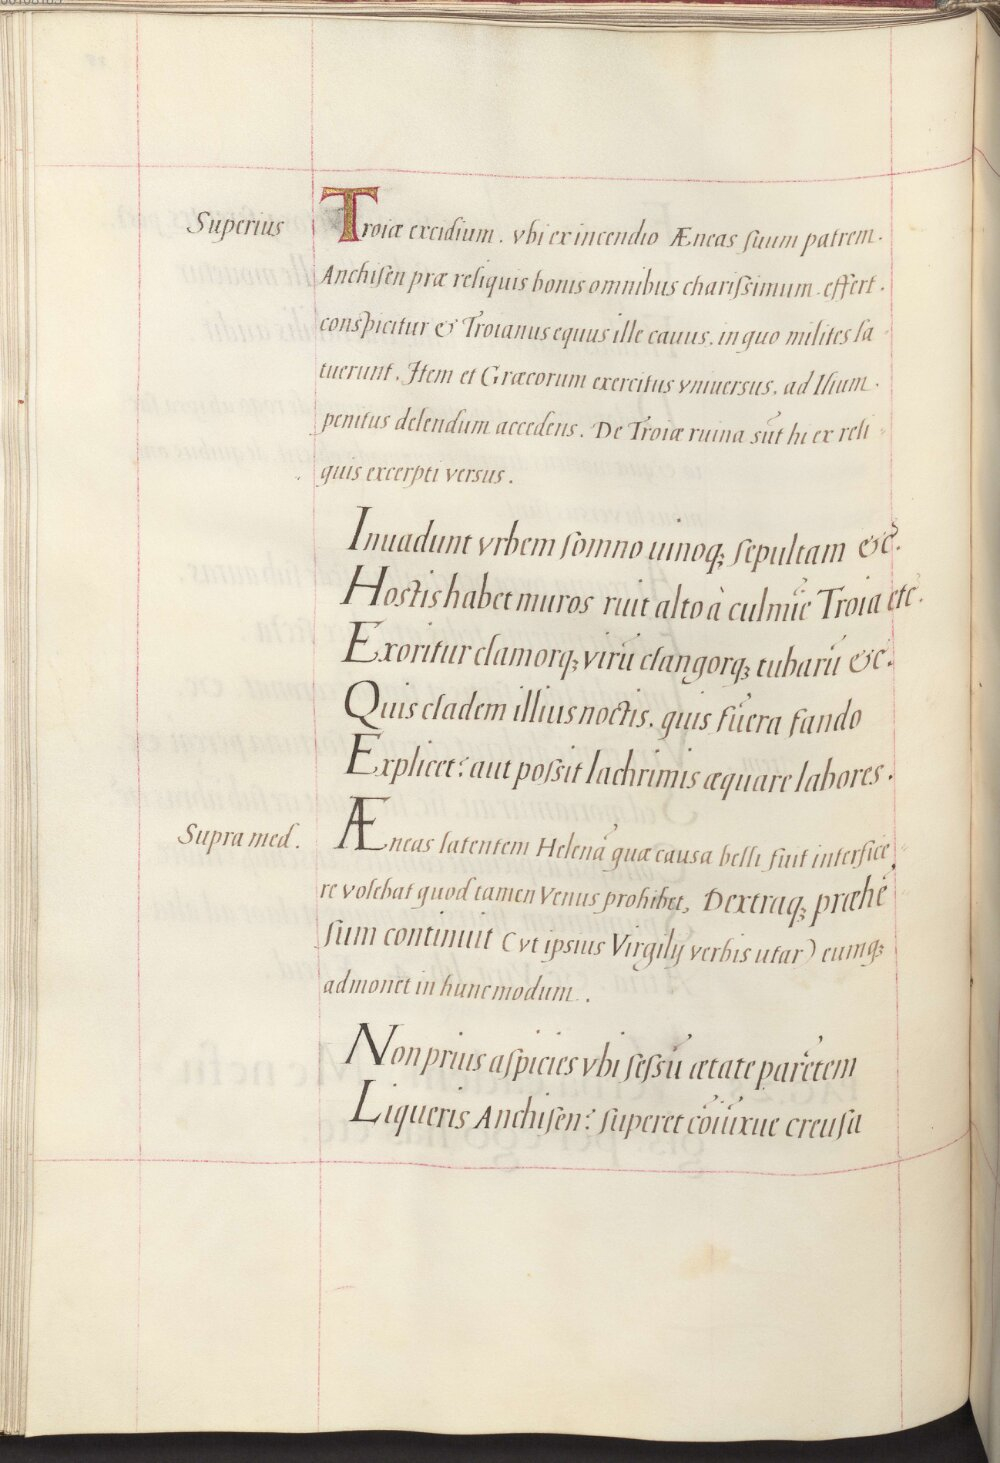 Superius
Troiæ excidium. vbi ex incendio Æneas suum patrem.
Anchisen præ reliquis bonis omnibus charissimum effert.
conspicitur & Troianus equus ille cauus, in quo milites la
tuerunt, Item et Græcorum exercitus vniuersus, ad Ilium.
penitus delendum accedens. De Troiæ ruina sūt hi ex reli
quis excerpti versus.
Inuadunt vrbem somno uinoq; sepultam &c̄.
Hostis habet muros ruit alto à culmīe Troia etc̄.
Exoritur clamorq; virū clangorq; tubarū &c̄.
Quis cladem illius noctis. quis fūera fando
Explicet? aut possit lachrimis æquare labores.
Supra med.
Æneas latentem Helenā quæ causa belli fuit interfice
re volebat quod tamen Venus prohibet, Dextraq; præhē
sum continuit (vt ipsius Virgilij verbis utar) eumq;
admonet in hunc modum.
Non prius aspicies vbi sessū ætate parētem
Liqueris Anchisen? superet cōiūxue creusa